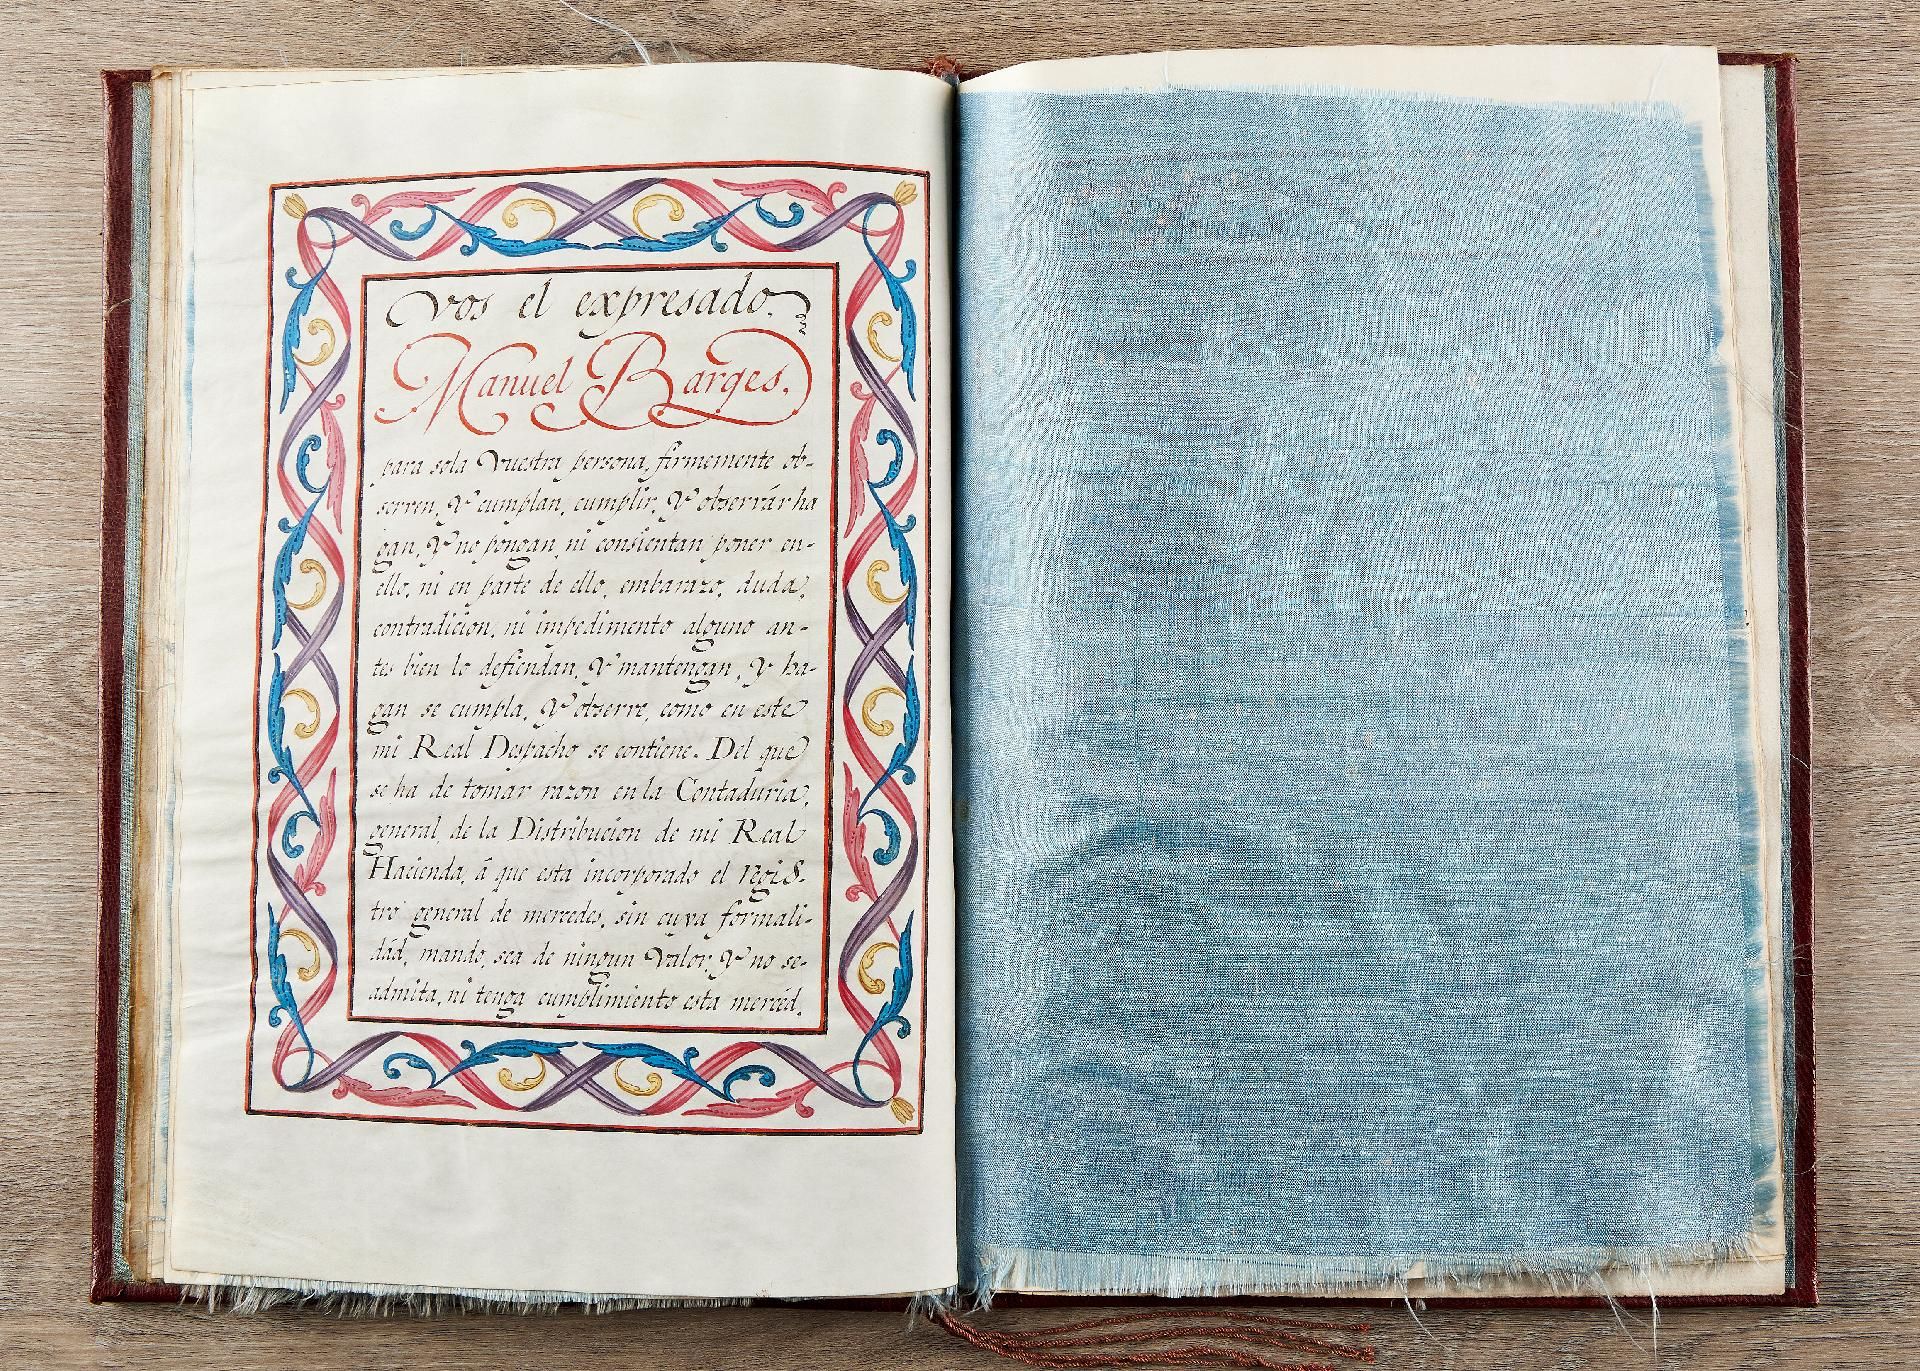 vos el expresado.
Manuel Barges,
para sola Vuestra persona, firmemente ob-
serven, Y cumplan, cumplir, Y observár ha
gan, Y no pongan, ni consientan poner en-
ello, ni en parte de ello, embarazo, duda,
contradicion, ni impedimento alguno an-
tes bien lo defiendan, Y mantengan, Y ha-
gan se cumpla, Y observe, como en este
mi Real Despacho se contiene. Del que
se ha de tomar razon en la Contaduria,
general, de la Distribucion de mi Real
Hacienda, á que esta incorporado el regis-
tro general de mercedes, sin cuya formali-
dád, mando, sea de ningun Valor, Y no se-
admita, ni tenga cumplimiento esta mercéd,